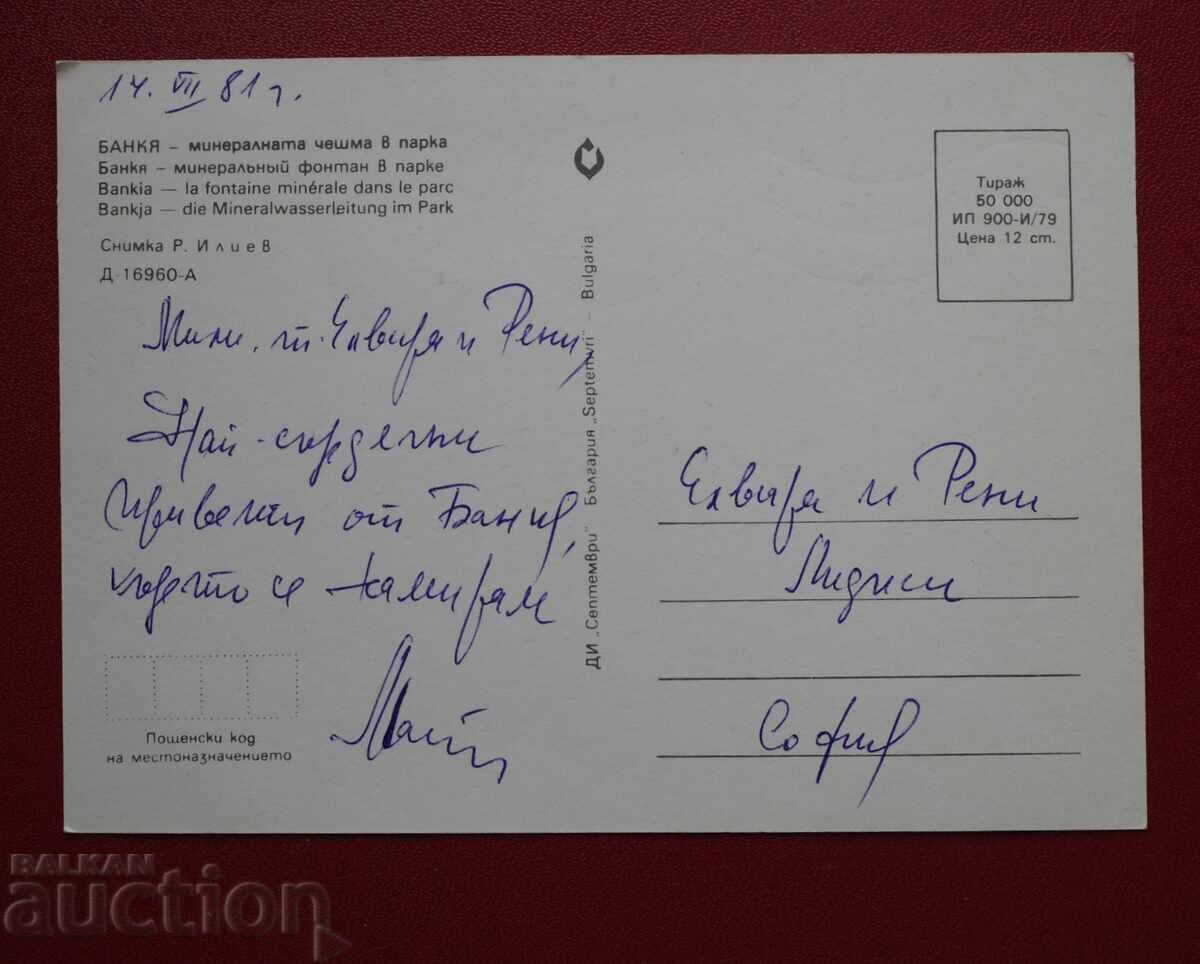 14. VII 81 г.
БАНКЯ – минералната чешма в парка
Банкя – минеральный фонтан в парке
Bankia — la fontaine minérale dans le parc
Bankja — die Mineralwasserleitung im Park
Снимка Р. Илиев
Д-16960-А
Мили, т. Елвира и Рени,
Най-сърдечни
привети от Банкя,
където се намирам
Пощенски код
на местоназначението
ДИ „Септември" България „Septemvri" – Bulgaria
Тираж
50 000
ИП 900-И/79
Цена 12 ст.
Елвира и Рени
София
BALKAN
auction